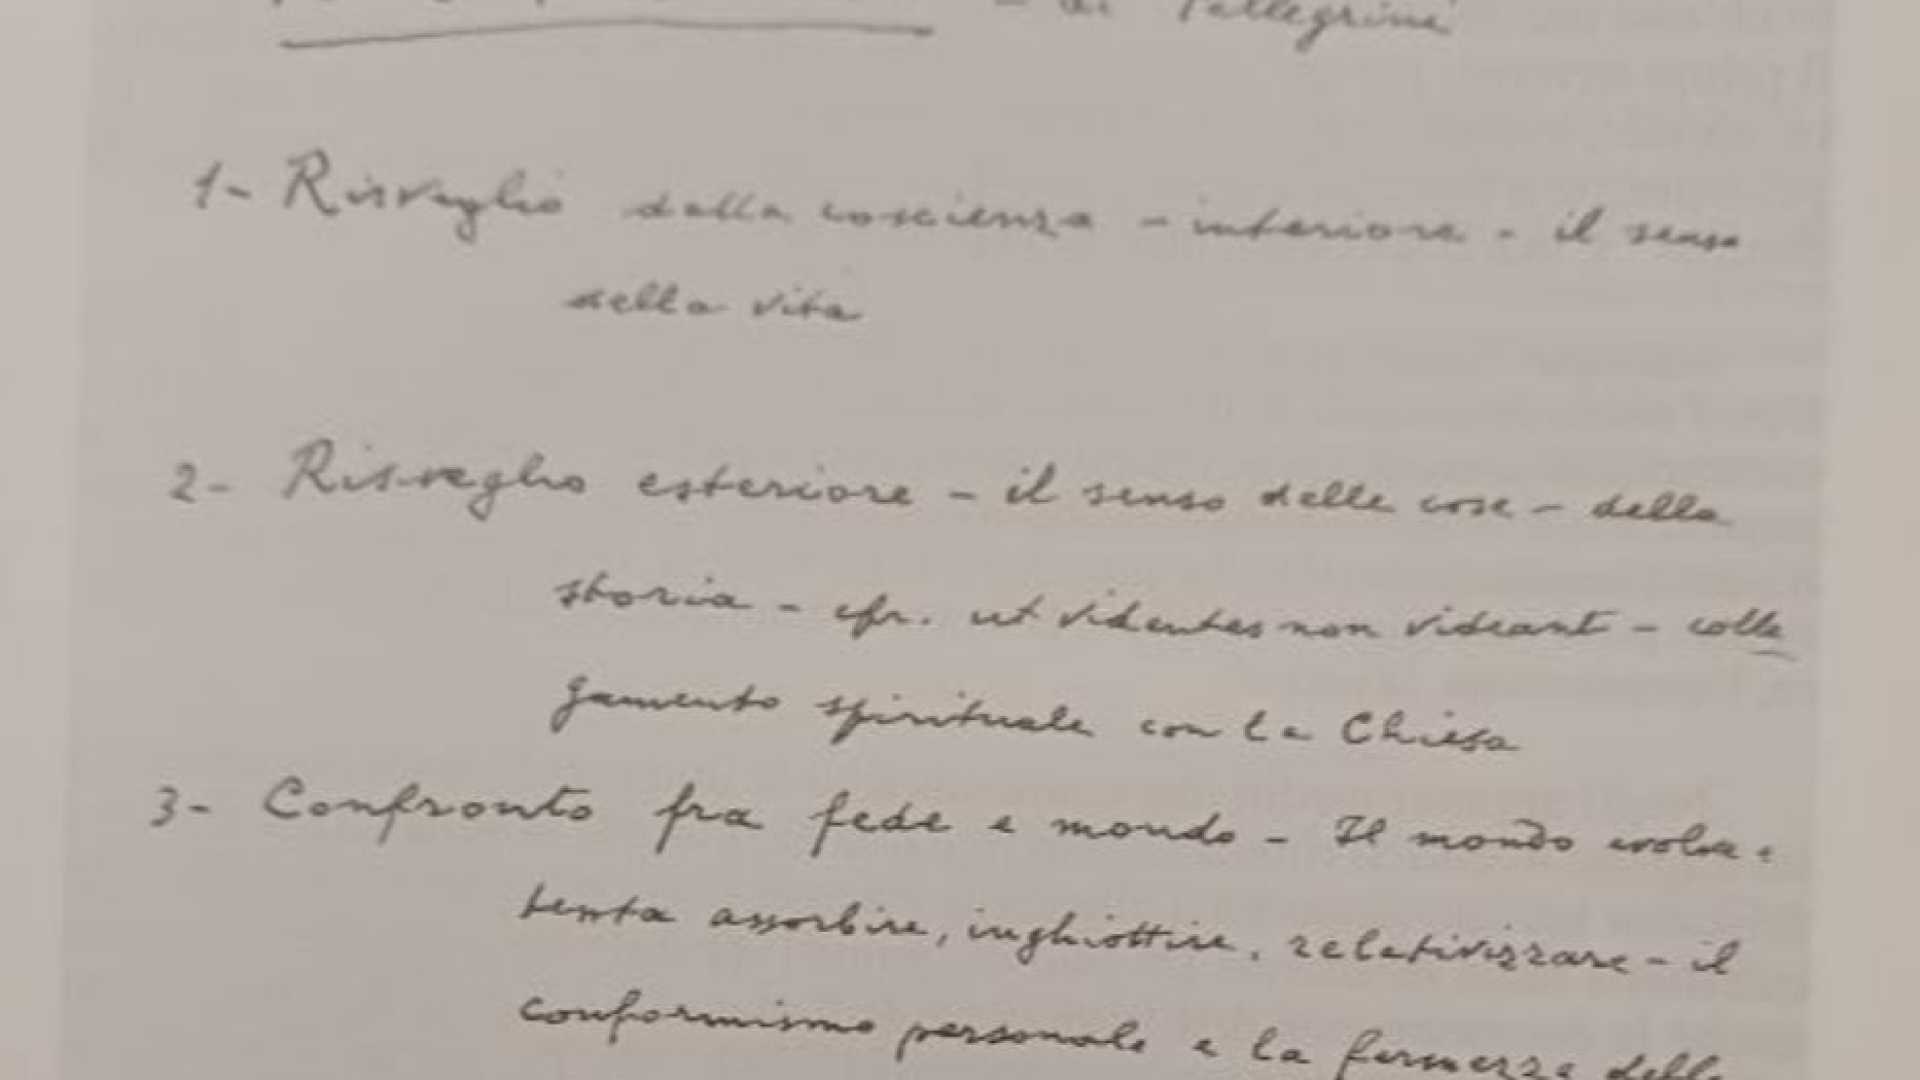 di Pellegrini
1- Risveglio della coscienza - interiore - il senso
della vita
2- Risveglio esteriore - il senso delle cose - della
storia - cfr. ut videntes non videant - colle
gamento spirituale con la Chiesa
3- Confronto fra fede e mondo - Il mondo evolve e
tenta assorbire, inghiottire, relativizzare - il
conformismo personale e la fermezza della